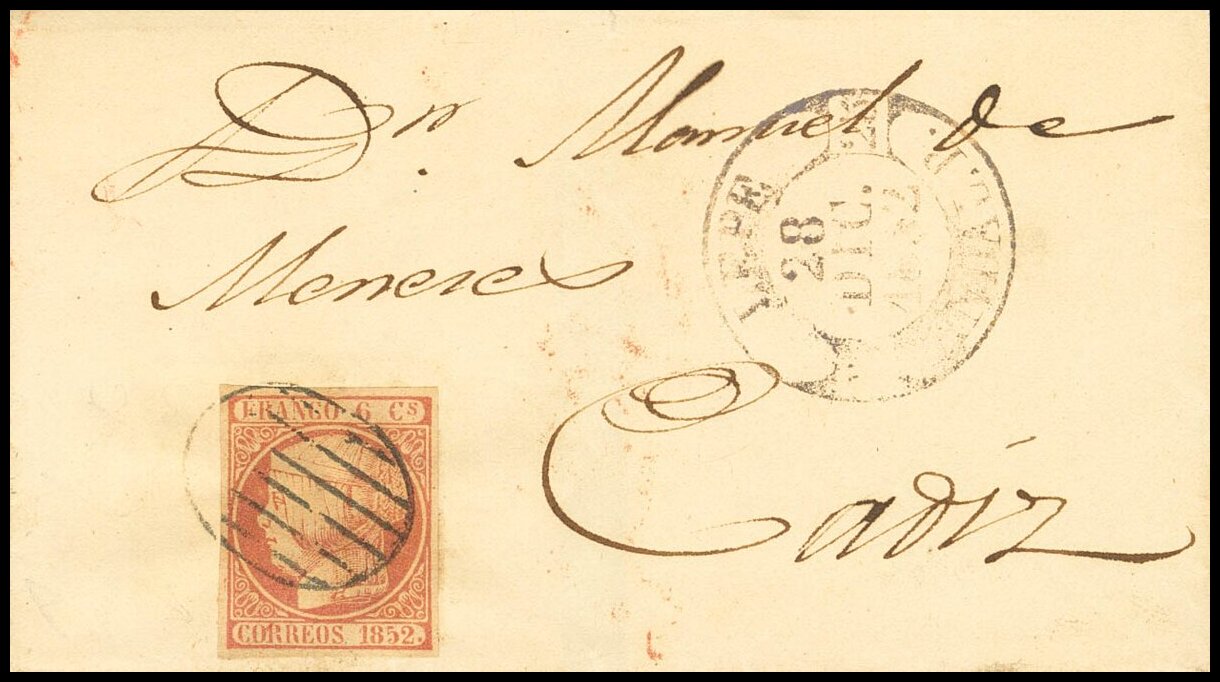 Dn. Manuel de
Meneses
Cadiz
LEPE
28
DIC.
1852
FRANCO 6 Cs
CORREOS 1852.